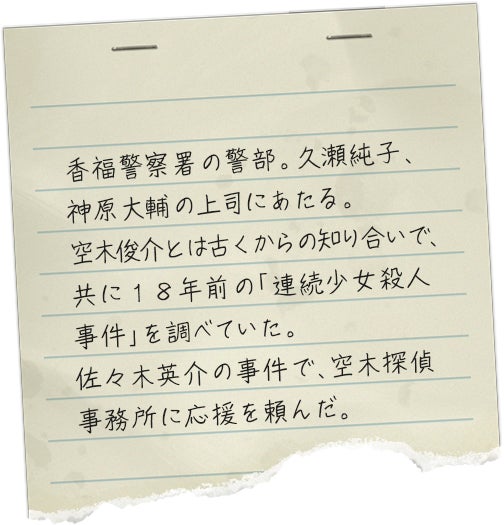 香福警察署の警部。久瀬純子、
神原大輔の上司にあたる。
空木俊介とは古くからの知り合いで、
共に１８年前の「連続少女殺人
事件」を調べていた。
佐々木英介の事件で、空木探偵
事務所に応援を頼んだ。